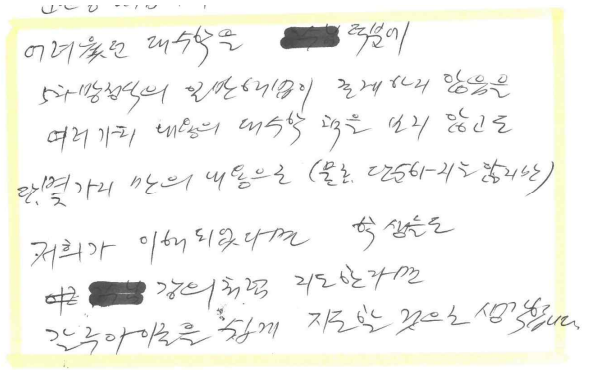 어려웠던 대수학을 덕분에
5차방정식의 일반해법이 존재하지 않음을
여러가지 내용의 대수학 책을 보지 않고도
단, 몇가지 만의 내용으로 (물론, 단순하지는 않지만)
저희가 이해되었다면 학생들도
강의처럼 지도한다면
갈루아이론을 쉽게 지도할 것으로 생각합니다.